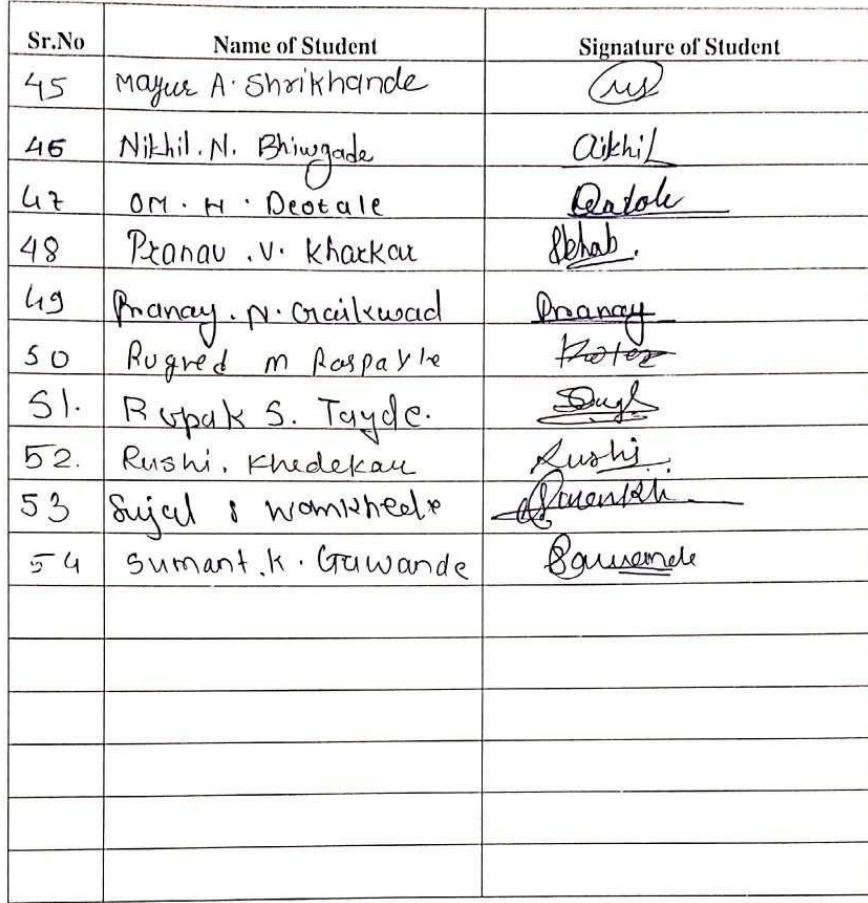 Sr.No Name of Student Signature of Student
45 Mayur A. Shrikhande
46 Nikhil. N. Bhiwgade
47 OM. H. Deotale
48 Pranav . V. Kharkar
49 Pranay. N. Gaikwad Pranay
50 Rugved m Raspayle
51. Rupak S. Tayde.
52. Rushi. Khedekar Rushi
53 Sujal s wamkhede
54 Sumant. K. Gawande